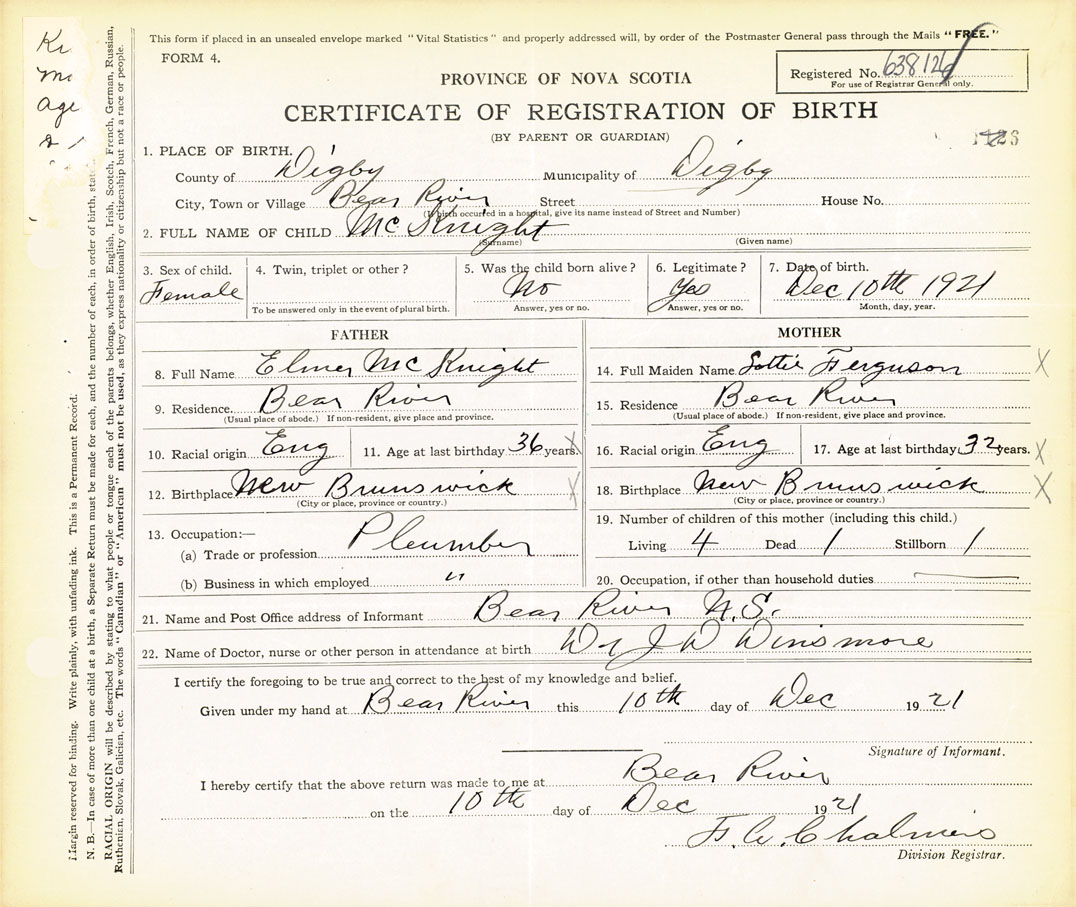 This form if placed in an unsealed envelope marked "Vital Statistics" and properly addressed will, by order of the Postmaster General pass through the Mails "FREE."
FORM 4.
PROVINCE OF NOVA SCOTIA
Registered No. 638126
For use of Registrar General only.
CERTIFICATE OF REGISTRATION OF BIRTH
(BY PARENT OR GUARDIAN)
1. PLACE OF BIRTH.
County of Digby Municipality of Digby
City, Town or Village Bear River Street House No.
(If birth occurred in a hospital, give its name instead of Street and Number)
2. FULL NAME OF CHILD McKnight
(Surname) (Given name)
3. Sex of child. 4. Twin, triplet or other? 5. Was the child born alive? 6. Legitimate? 7. Date of birth.
Female No Yes Dec 10th 1921
To be answered only in the event of plural birth. Answer, yes or no. Answer, yes or no. Month, day, year.
FATHER
8. Full Name Elmer McKnight
9. Residence Bear River
(Usual place of abode.) If non-resident, give place and province.
10. Racial origin Eng 11. Age at last birthday 36 years. X
12. Birthplace New Brunswick X
(City or place, province or country.)
13. Occupation:—
(a) Trade or profession Pleumber
(b) Business in which employed "
MOTHER
14. Full Maiden Name Lottie Ferguson X
15. Residence Bear River
(Usual place of abode.) If non-resident, give place and province.
16. Racial origin Eng 17. Age at last birthday 32 years. X
18. Birthplace New Brunswick X
(City or place, province or country.)
19. Number of children of this mother (including this child.)
Living 4 Dead 1 Stillborn 1
20. Occupation, if other than household duties
21. Name and Post Office address of Informant Bear River N.S.
22. Name of Doctor, nurse or other person in attendance at birth Dr J W Winsmore
I certify the foregoing to be true and correct to the best of my knowledge and belief.
Given under my hand at Bear River this 10th day of Dec 1921
Signature of Informant.
I hereby certify that the above return was made to me at Bear River
on the 10th day of Dec 1921
F. W. Chalmers
Division Registrar.
Margin reserved for binding. Write plainly, with unfading ink. This is a Permanent Record.
N. B.—In case of more than one child at a birth, a Separate Return must be made for each, and the number of each, in order of birth,
RACIAL ORIGIN will be described by stating to what people or tongue each of the parents belongs, whether English, Irish, Scotch, French, German, Russian,
Ruthenian, Slovak, Galician, etc. The words "Canadian" or "American" must not be used, as they express nationality or citizenship but not a race or people.